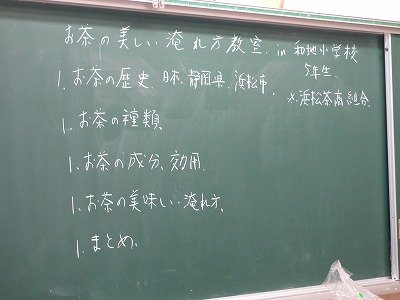 お茶の美しい淹れ方教室 in 和地小学校
5年生.
1. お茶の歴史 日本、静岡県、浜松市.
×.浜松茶商組合.
1. お茶の種類
1. お茶の成分、効用.
1. お茶の美味しい淹れ方.
1. まとめ.